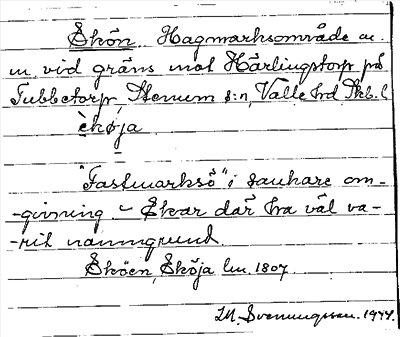 Ekön Hagmarksområde m.
m. vid gräns mot Härlingstorp på
Tubbetorp, Stenum s:n, Valle hd Skb. l
èköja
"Fastmarksö" i sankare om-
-givning – Ekar där tra väl va-
-rit namngrund.
Eköen, Eköja lm. 1807
M. Svenungsson. 1944.